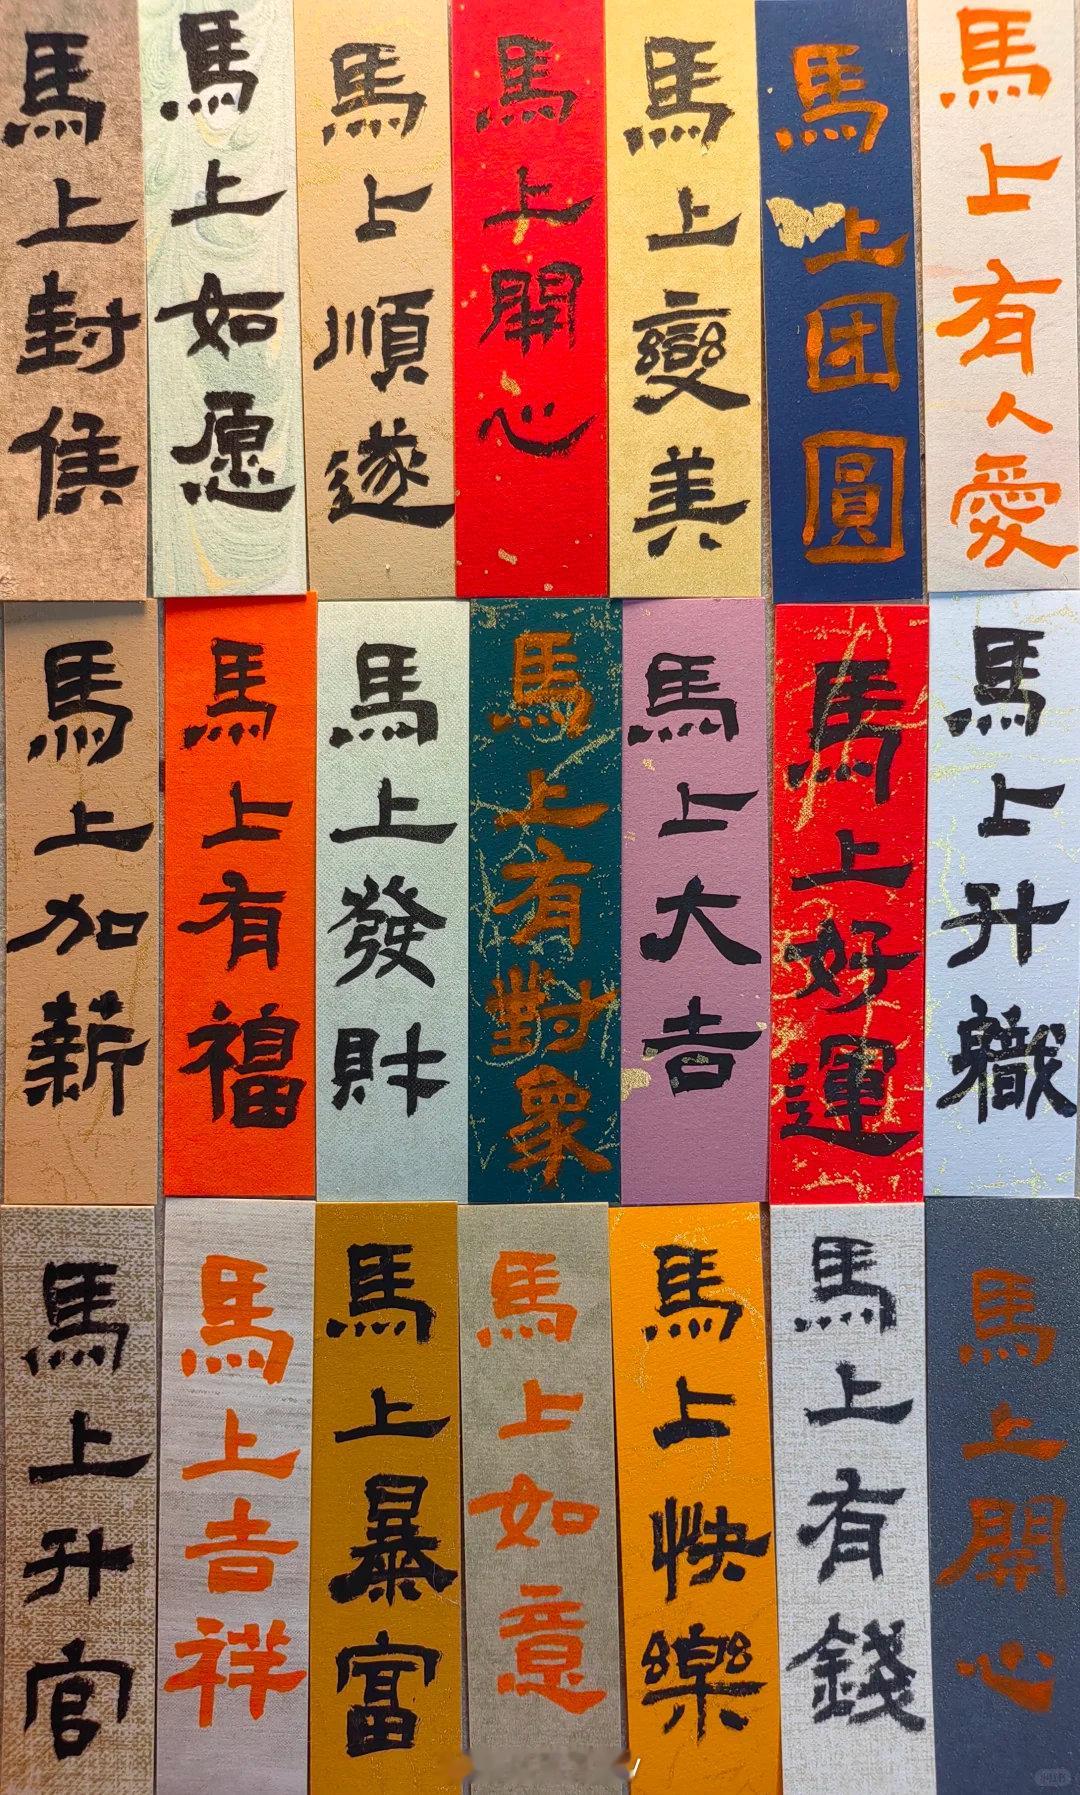 馬上封侯
馬上如愿
馬上順遂
馬上開心
馬上變美
馬上团圓
馬上有人愛
馬上加薪
馬上有福
馬上發財
馬上有對象
馬上大吉
馬上好運
馬上升職
馬上升官
馬上吉祥
馬上暴富
馬上如意
馬上快樂
馬上有錢
馬上開心